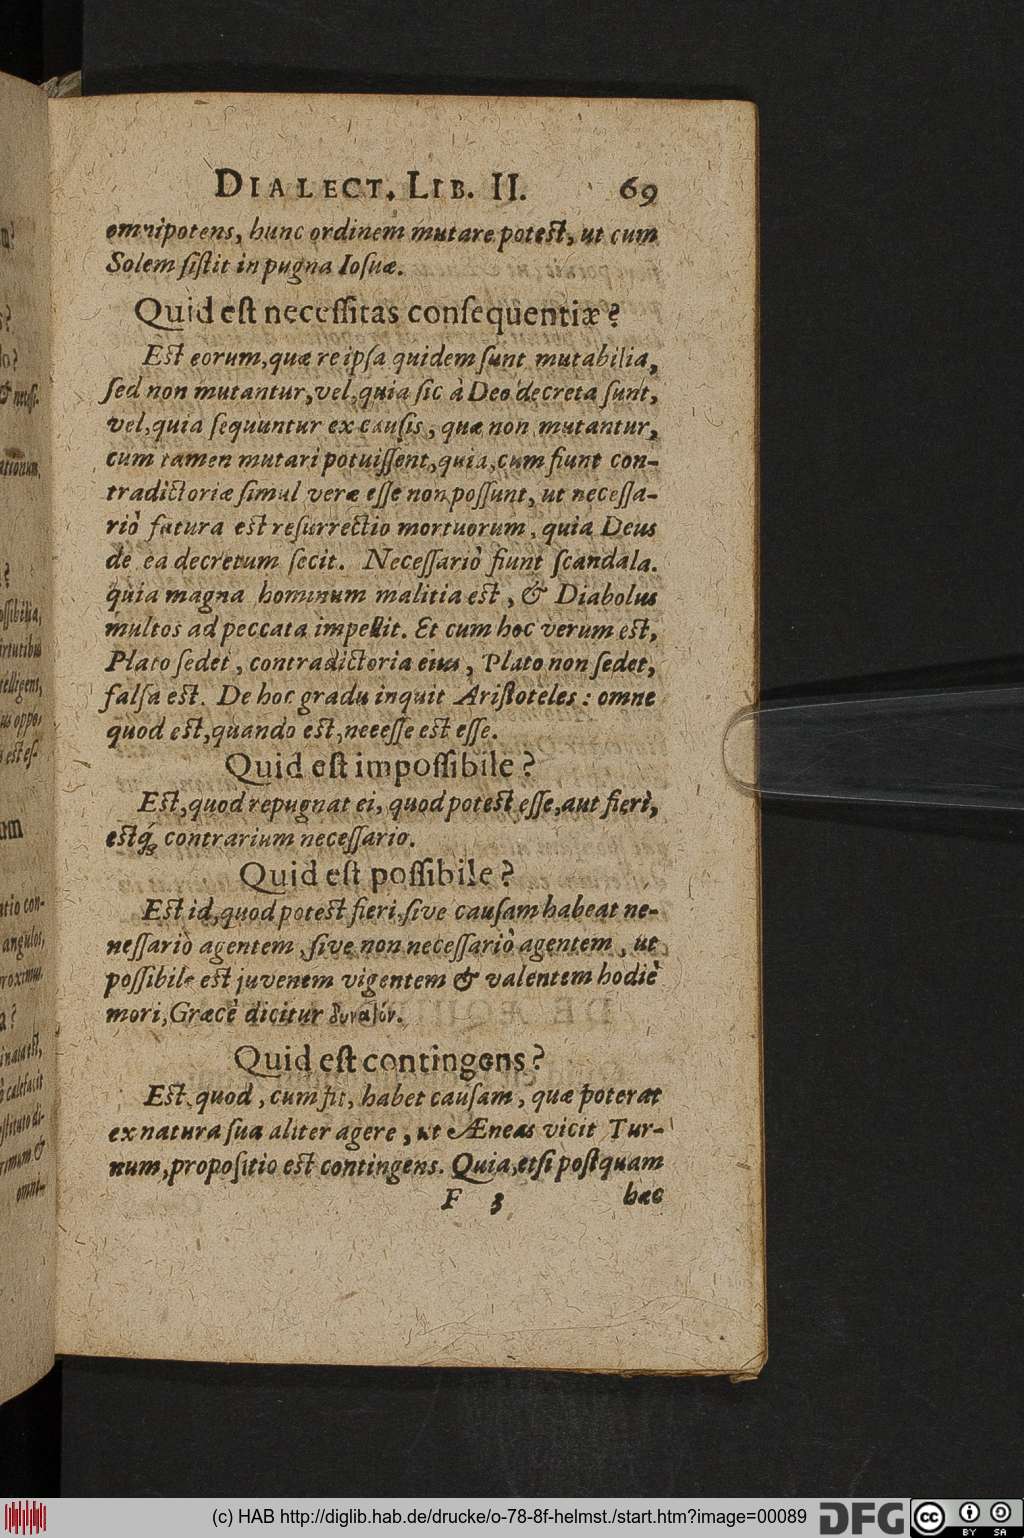 DIALECT. LIB. II. 69
omnipotens, hunc ordinem mutare potest, ut cum
Solem ſiſtit in pugna Ioſuæ.
Quid eſt neceſſitas conſequentiæ?
Est eorum, quæ re ipſa quidem ſunt mutabilia,
ſed non mutantur, vel, quia ſic à Deo decreta ſunt,
vel, quia ſequuntur ex cauſis, quæ non mutantur,
cum tamen mutari potuiſſent, quia, cum fiunt con-
tradictoriæ ſimul veræ eſſe non poſſunt, ut neceſſa-
riò futura est reſurrectio mortuorum, quia Deus
de ea decretum fecit. Neceſſariò fiunt ſcandala.
quia magna hominum malitia est, & Diabolus
multos ad peccata impellit. Et cum hoc verum est,
Plato ſedet, contradictoria eius, Plato non ſedet,
falſa est. De hoc gradu inquit Ariſtoteles: omne
quod est, quando est, neeeſſe est eſſe.
Quid eſt impoſſibile?
Est, quod repugnat ei, quod potest eſſe, aut fieri,
estq́; contrarium neceſſario.
Quid eſt poſſibile?
Est id, quod potest fieri, ſive cauſam habeat ne-
neſſariò agentem, ſive non neceſſariò agentem, ut
poſſibile est juvenem vigentem & valentem hodiè
mori, Græcè dicitur δυναΤόν.
Quid eſt contingens?
Est quod, cum fit, habet cauſam, quæ poterat
ex natura ſua aliter agere, ut Æneas vicit Tur-
num, propoſitio est contingens. Quia, etſi poſtquam
F 3 hæc
& neceſſi-
(c) HAB http://diglib.hab.de/drucke/o-78-8f-helmst./start.htm?image=00089
DFG
cc BY SA